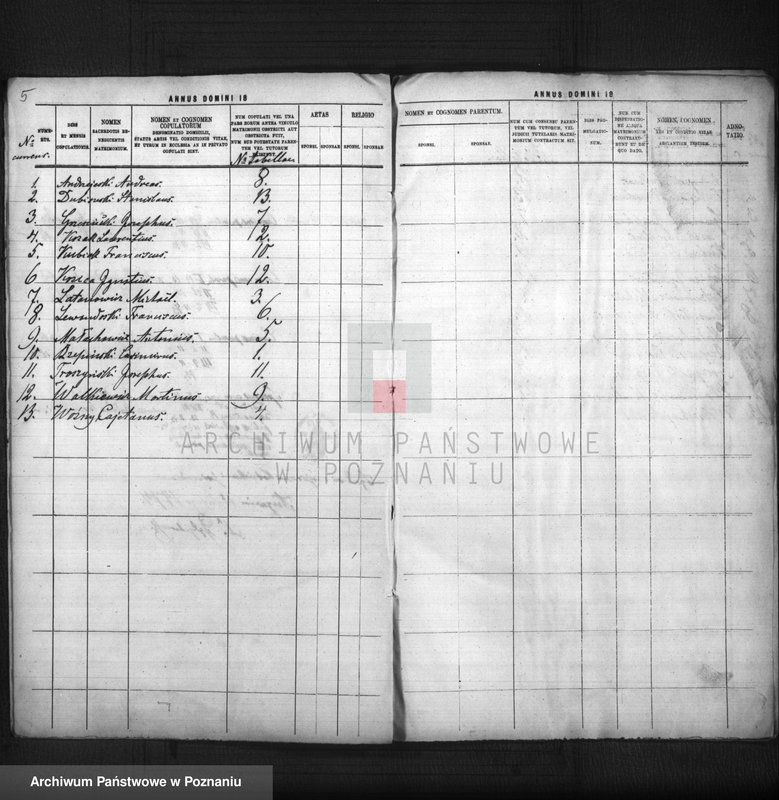 5
ANNUS DOMINI 18
No currens.
NUMERUS.
DIES ET MENSIS COPULATIONIS.
NOMEN SACERDOTIS BENEDICENTIS MATRIMONIUM.
NOMEN ET COGNOMEN COPULATORUM
DENOMINATIO DOMICILII, STATUS ARTIS VEL CONDITIONIS VITAE, ET UTRUM IN ECCLESIA AN IN PRIVATO COPULATI SINT.
NUM COPULATI VEL UNA PARS EORUM ANTEA VINCULO MATRIMONII OBSTRICTI AUT OBSTRICTA FUIT, NUM SUB POTESTATE PARENTEM VEL TUTORUM
No tabellae
AETAS
SPONSI. SPONSAE.
RELIGIO
SPONSI. SPONSAE.
1. Andrzejeski Andreas. 8.
2. Dubiowski Stanislaus. 13.
3. Josephus. 7
4. Kozak Laurentius. 2.
5. Kubiak Franciscus. 10.
6 Ignatius. 12.
7. Latanowicz Michaël. 3.
8. Lewandoski Franciscus. 6.
9. Małachowicz Antonius. 5.
10. Rzepinski Casimirus. 1.
11. Josephus. 11.
12. Walkiewicz Martinus 9.
13. Woźny Cajetanus. 4.
ANNUS DOMINI 18
NOMEN ET COGNOMEN PARENTUM.
SPONSI. SPONSAE.
NUM CUM CONSENSU PARENTUM VEL TUTORUM, VEL JUDICII TUTELARIS MATRIMONIUM CONTRACTUM SIT.
DIES PROMULGATIONUM.
NUM CUM DISPENSATIONE ALIQUA MATRIMONIUM CONTRAXERUNT ET DE QUO DATO.
NOMEN, COGNOMEN
ET CONDITIO VITAE TESTIUM.
ADNOTATIO.
ARCHIWUM PAŃSTWOWE
W POZNANIU
Archiwum Państwowe w Poznaniu